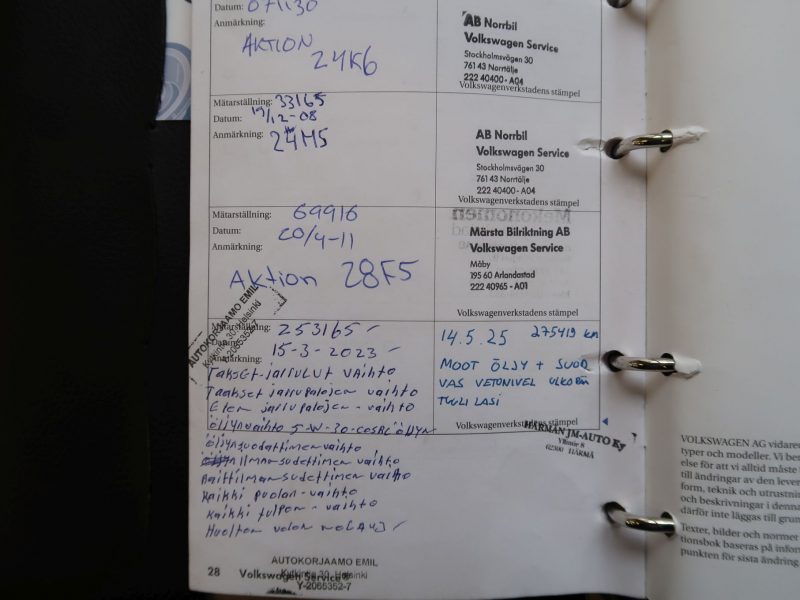 Datum: 071130
Anmärkning:
AKTION
24K6
AB Norrbil
Volkswagen Service
Stockholmsvägen 30
761 43 Norrtälje
222 40400 - A04
Volkswagenverkstadens stämpel
Mätarställning: 33165
Datum: 19/12-08
Anmärkning: 24M5
AB Norrbil
Volkswagen Service
Stockholmsvägen 30
761 43 Norrtälje
222 40400 - A04
Volkswagenverkstadens stämpel
Mätarställning: 69916
Datum: 20/4-11
Anmärkning:
Aktion 28F5
Mekonomen
Märsta Bilriktning AB
Volkswagen Service
Måby
195 60 Arlandastad
222 40965 - A01
Volkswagenverkstadens stämpel
AUTOKORJAAMO EMIL
Kytkintie 30, Helsinki
Y-2065352-7
Mätarställning: 253165
Datum: 15-3-2023
Anmärkning:
Takset-jarrulut vaihto
Taakset jarrupalojen vaihto
Eten jarrupalojen-vaihto
Öljynvaihto 5-W-30-
öljynsuodattimen vaihto
ilmansudettimen vaihto
Raittilmansudettimen vaihto
kaikki puolan-vaihto
kaikki tulpan-vaihto
Huollon valon
14.5.25 275419 KM
MOOT ÖLJY + SUOD
VAS VETONIVEL ULKO
TUULI LASI
Volkswagenverkstadens stämpel
HÄRMÄN JM-AUTO Ky
Yllintie 8
62300 HÄRMÄ
AUTOKORJAAMO EMIL
Kytkintie 30, Helsinki
Y-2065352-7
28 Volkswagen Service®
VOLKSWAGEN AG vidare
typer och modeller. Vi ber
else för att vi alltid måste
till ändringar av den lever
form, teknik och utrustnin
och beskrivningar i denna
därför inte läggas till grun
Texter, bilder och normer
tionsbok baseras på infor
punkten för sista ändring